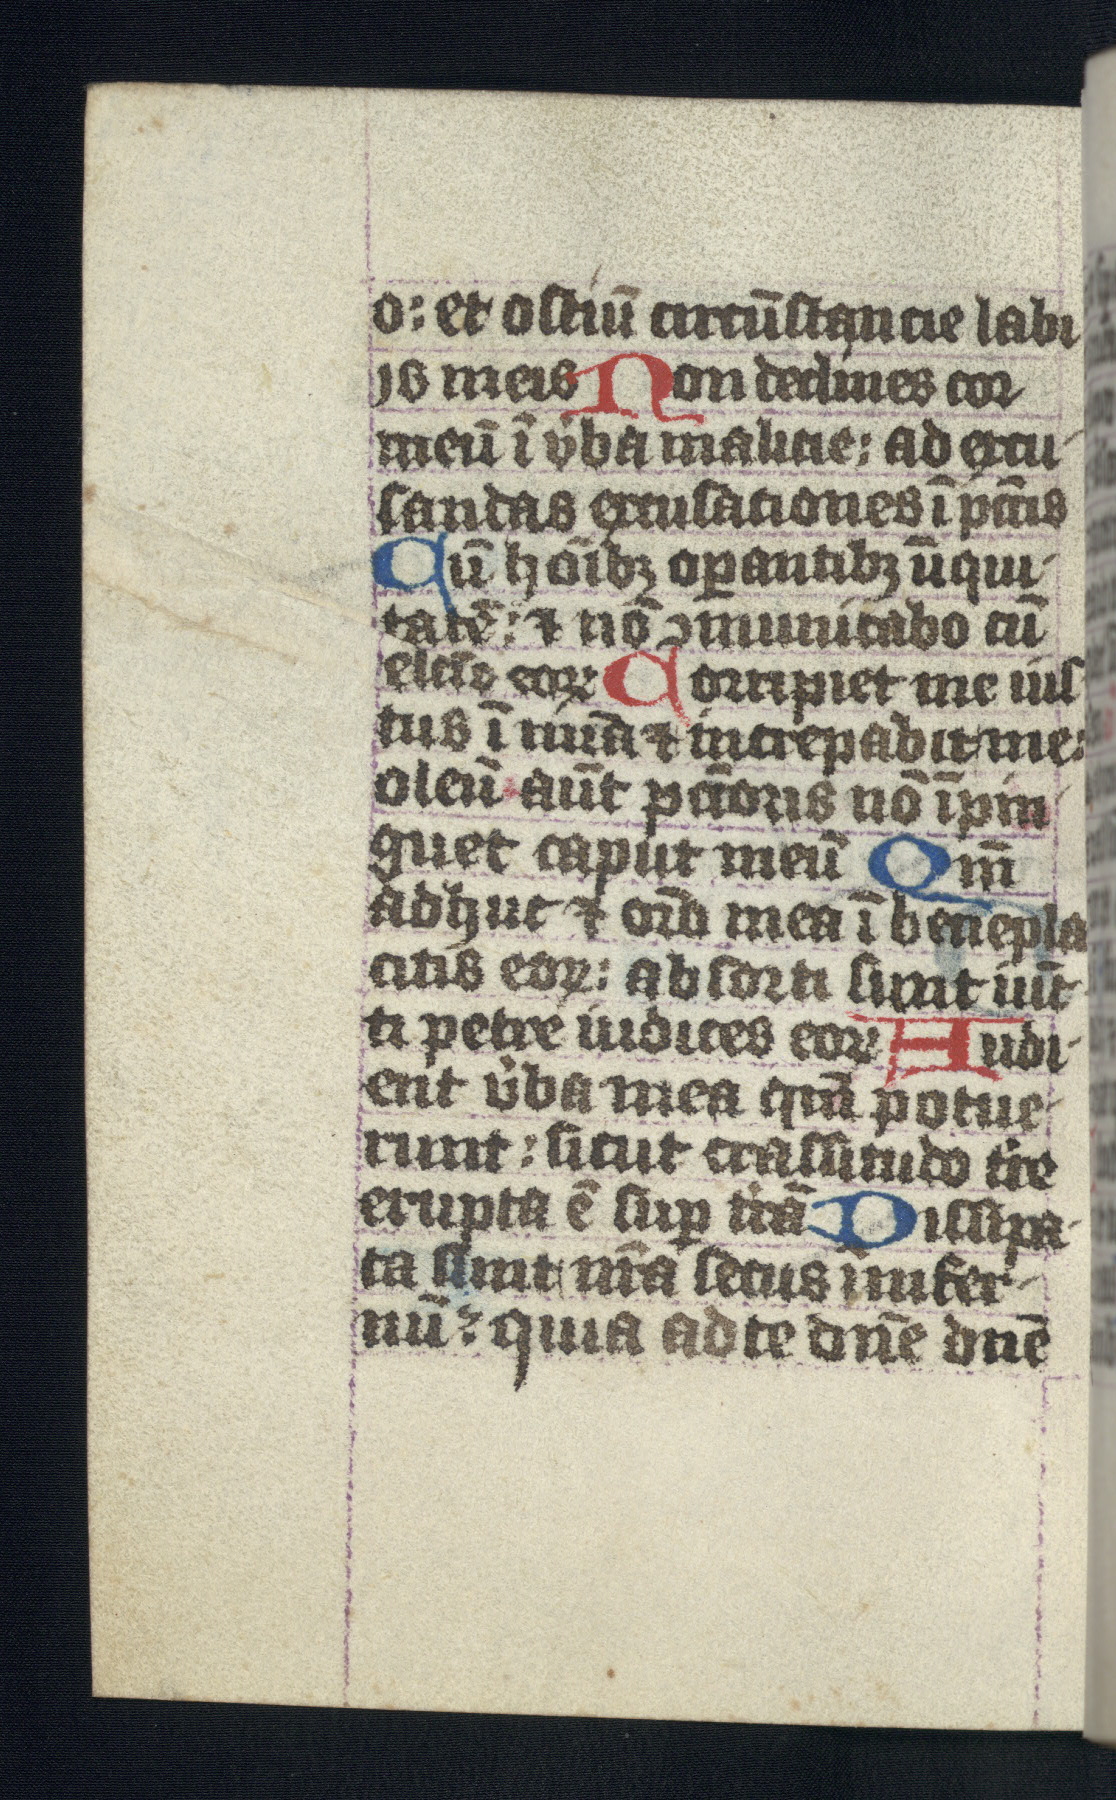 o: et ostiū circūstancie labi
js meis Non declines cor
meū ī v̓ba malicie: ad excu
sandas excusationes ī pc̄cis
Cū hoībꝫ oꝑantibꝫ īiqui
tatē: ⁊ nō ꝯmunicabo cū
elc̄is eoꝝ Corripiet me ius
tus ī mīa ⁊ increpabit me:
oleū aūt pc̄toris nō īpin
guet caput meū Qm̄
adhuc ⁊ or̄o mea ī benepla
citis eoꝝ: absorti sunt iūc
ti petre iudices eoꝝ Audi
ent v̓ba mea qm̄ potue
runt: sicut crassitudo tr̄e
erupta ē suꝑ tr̄ā Dissipa
ta sunt nr̄a secus infer
nū: quia ad te dn̄e dn̄e